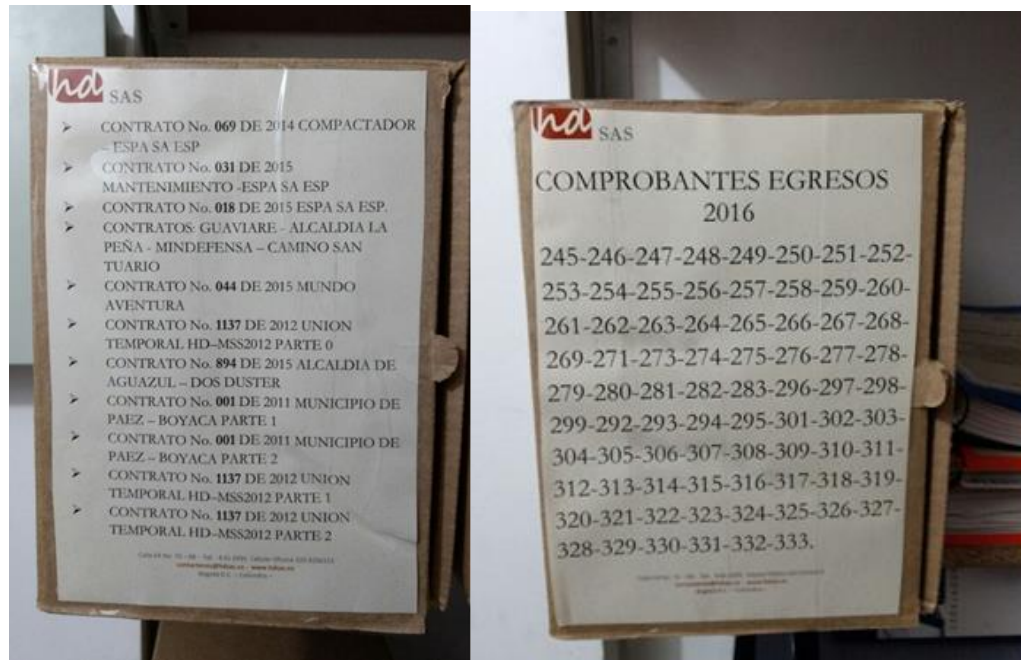 hd SAS
➢ CONTRATO No. 069 DE 2014 COMPACTADOR
– ESPA SA ESP
➢ CONTRATO No. 031 DE 2015
MANTENIMIENTO -ESPA SA ESP
➢ CONTRATO No. 018 DE 2015 ESPA SA ESP.
➢ CONTRATOS: GUAVIARE - ALCALDIA LA
PEÑA - MINDEFENSA – CAMINO SAN
TUARIO
➢ CONTRATO No. 044 DE 2015 MUNDO
AVENTURA
➢ CONTRATO No. 1137 DE 2012 UNION
TEMPORAL HD–MSS2012 PARTE 0
➢ CONTRATO No. 894 DE 2015 ALCALDIA DE
AGUAZUL – DOS DUSTER
➢ CONTRATO No. 001 DE 2011 MUNICIPIO DE
PAEZ – BOYACA PARTE 1
➢ CONTRATO No. 001 DE 2011 MUNICIPIO DE
PAEZ – BOYACA PARTE 2
➢ CONTRATO No. 1137 DE 2012 UNION
TEMPORAL HD–MSS2012 PARTE 1
➢ CONTRATO No. 1137 DE 2012 UNION
TEMPORAL HD–MSS2012 PARTE 2
hd SAS
COMPROBANTES EGRESOS
2016
245-246-247-248-249-250-251-252-
253-254-255-256-257-258-259-260-
261-262-263-264-265-266-267-268-
269-271-273-274-275-276-277-278-
279-280-281-282-283-296-297-298-
299-292-293-294-295-301-302-303-
304-305-306-307-308-309-310-311-
312-313-314-315-316-317-318-319-
320-321-322-323-324-325-326-327-
328-329-330-331-332-333.